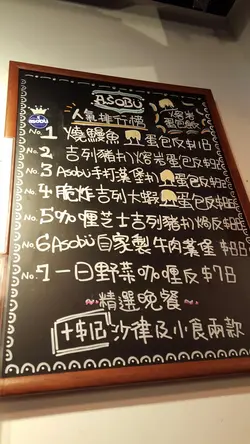 ASOBU
人氣排行榜
熔岩
蛋包飯
No.1 燒鰻魚 蛋包反 $
No.2 吉列豬扒熔岩蛋包反
No.3 Asobu手打漢堡扒 蛋包反
No.4 脆炸吉列大蝦 蛋包反
No.5 咖喱芝士吉列豬扒焗反
No.6 Asobu自家製牛肉漢堡 $88
No.7 一日野菜咖喱反 $78
~精選晚餐~
+$18 沙律及小食兩款